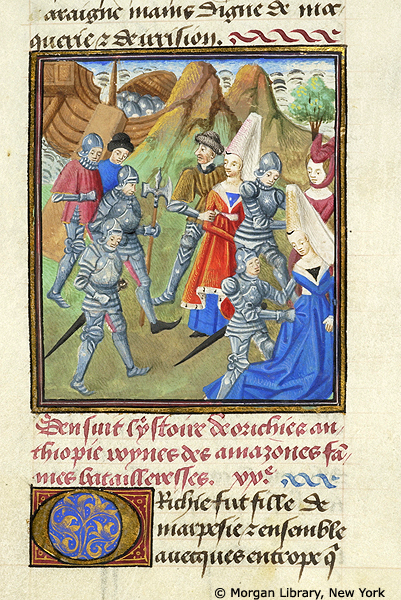 araigne mains digne de moc
querie & de derision.
Densuit lystoire de orichies an
thiopie roynes des amazones fa
mes batailleresses. xvi͏e
Orichie fut fille de
marpesie & ensemble
avecques entrope q̃
© Morgan Library, New York